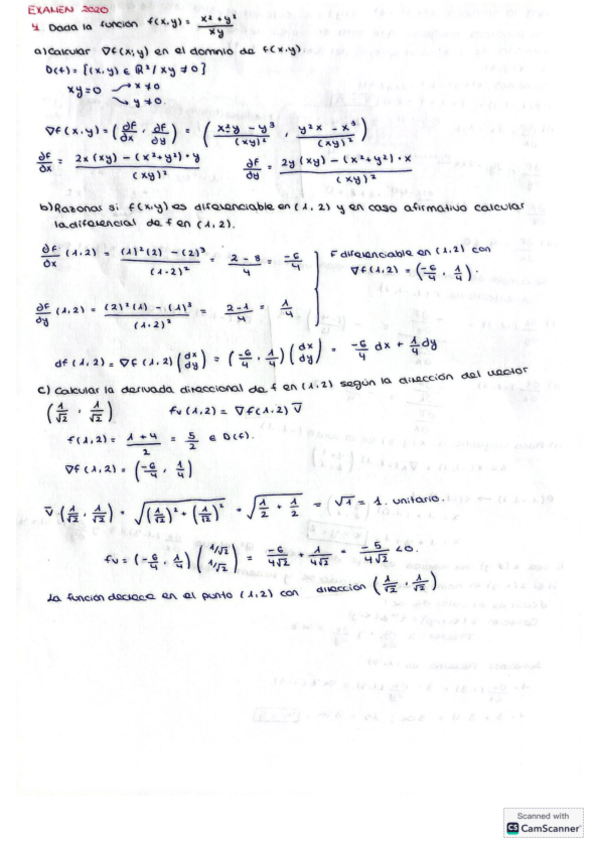 EXAMEN 2020
1. Dada la función f(x,y) = x² + y² / xy
a) Calcular ∇f(x,y) en el dominio de f(x,y).
D(f) = {(x,y) ∈ R² / xy ≠ 0}
xy = 0 → x ≠ 0
→ y ≠ 0.
∇f(x,y) = (∂f/∂x , ∂f/∂y) = (x²y − y³ / (xy)² , y²x − x³ / (xy)²)
∂f/∂x = 2x(xy) − (x²+y²)·y / (xy)²   ∂f/∂y = 2y(xy) − (x²+y²)·x / (xy)²
b) Razonar si f(x,y) es diferenciable en (1,2) y en caso afirmativo calcular
la diferencial de f en (1,2).
∂f/∂x (1,2) = (1)²(2) − (2)³ / (1·2)² = 2 − 8 / 4 = −6/4   F diferenciable en (1,2) con
∇f(1,2) = (−6/4 , 1/4).
∂f/∂y (1,2) = (2)²(1) − (1)³ / (1·2)² = 2−1 / 4 = 1/4
df(1,2) = ∇f(1,2) (dx dy) = (−6/4 , 1/4) (dx dy) = −6/4 dx + 1/4 dy
c) Calcular la derivada direccional de f en (1,2) según la dirección del vector
(1/√2 , 1/√2)   fv(1,2) = ∇f(1,2) v̄
f(1,2) = 1 + 4 / 2 = 5/2 ∈ D(f).
∇f(1,2) = (−6/4 , 1/4)
v̄ (1/√2 , 1/√2) = √((1/√2)² + (1/√2)²) = √(1/2 + 1/2) = √1 = 1. unitario.
fv = (−6/4 , 1/4) (1/√2 1/√2) = −6/4√2 + 1/4√2 = −5/4√2 < 0.
La función decrece en el punto (1,2) con dirección (1/√2 , 1/√2)
Scanned with
CS CamScanner